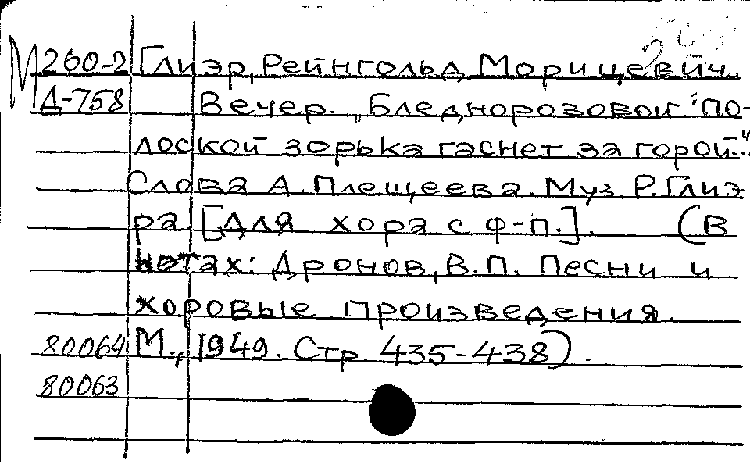 М 260-2 Глиэр, Рейнгольд Морицевич.
Д-758 Вечер. „Бледнорозовой по-
лоской зорька гаснет за горой."
Слова А. Плещеева. Муз. Р. Глиэ-
ра [Для хора с ф-п.]. (В
нотах: Дронов, В.П. Песни и
хоровые произведения.
80064 М., 1949. Стр 435-438).
80063